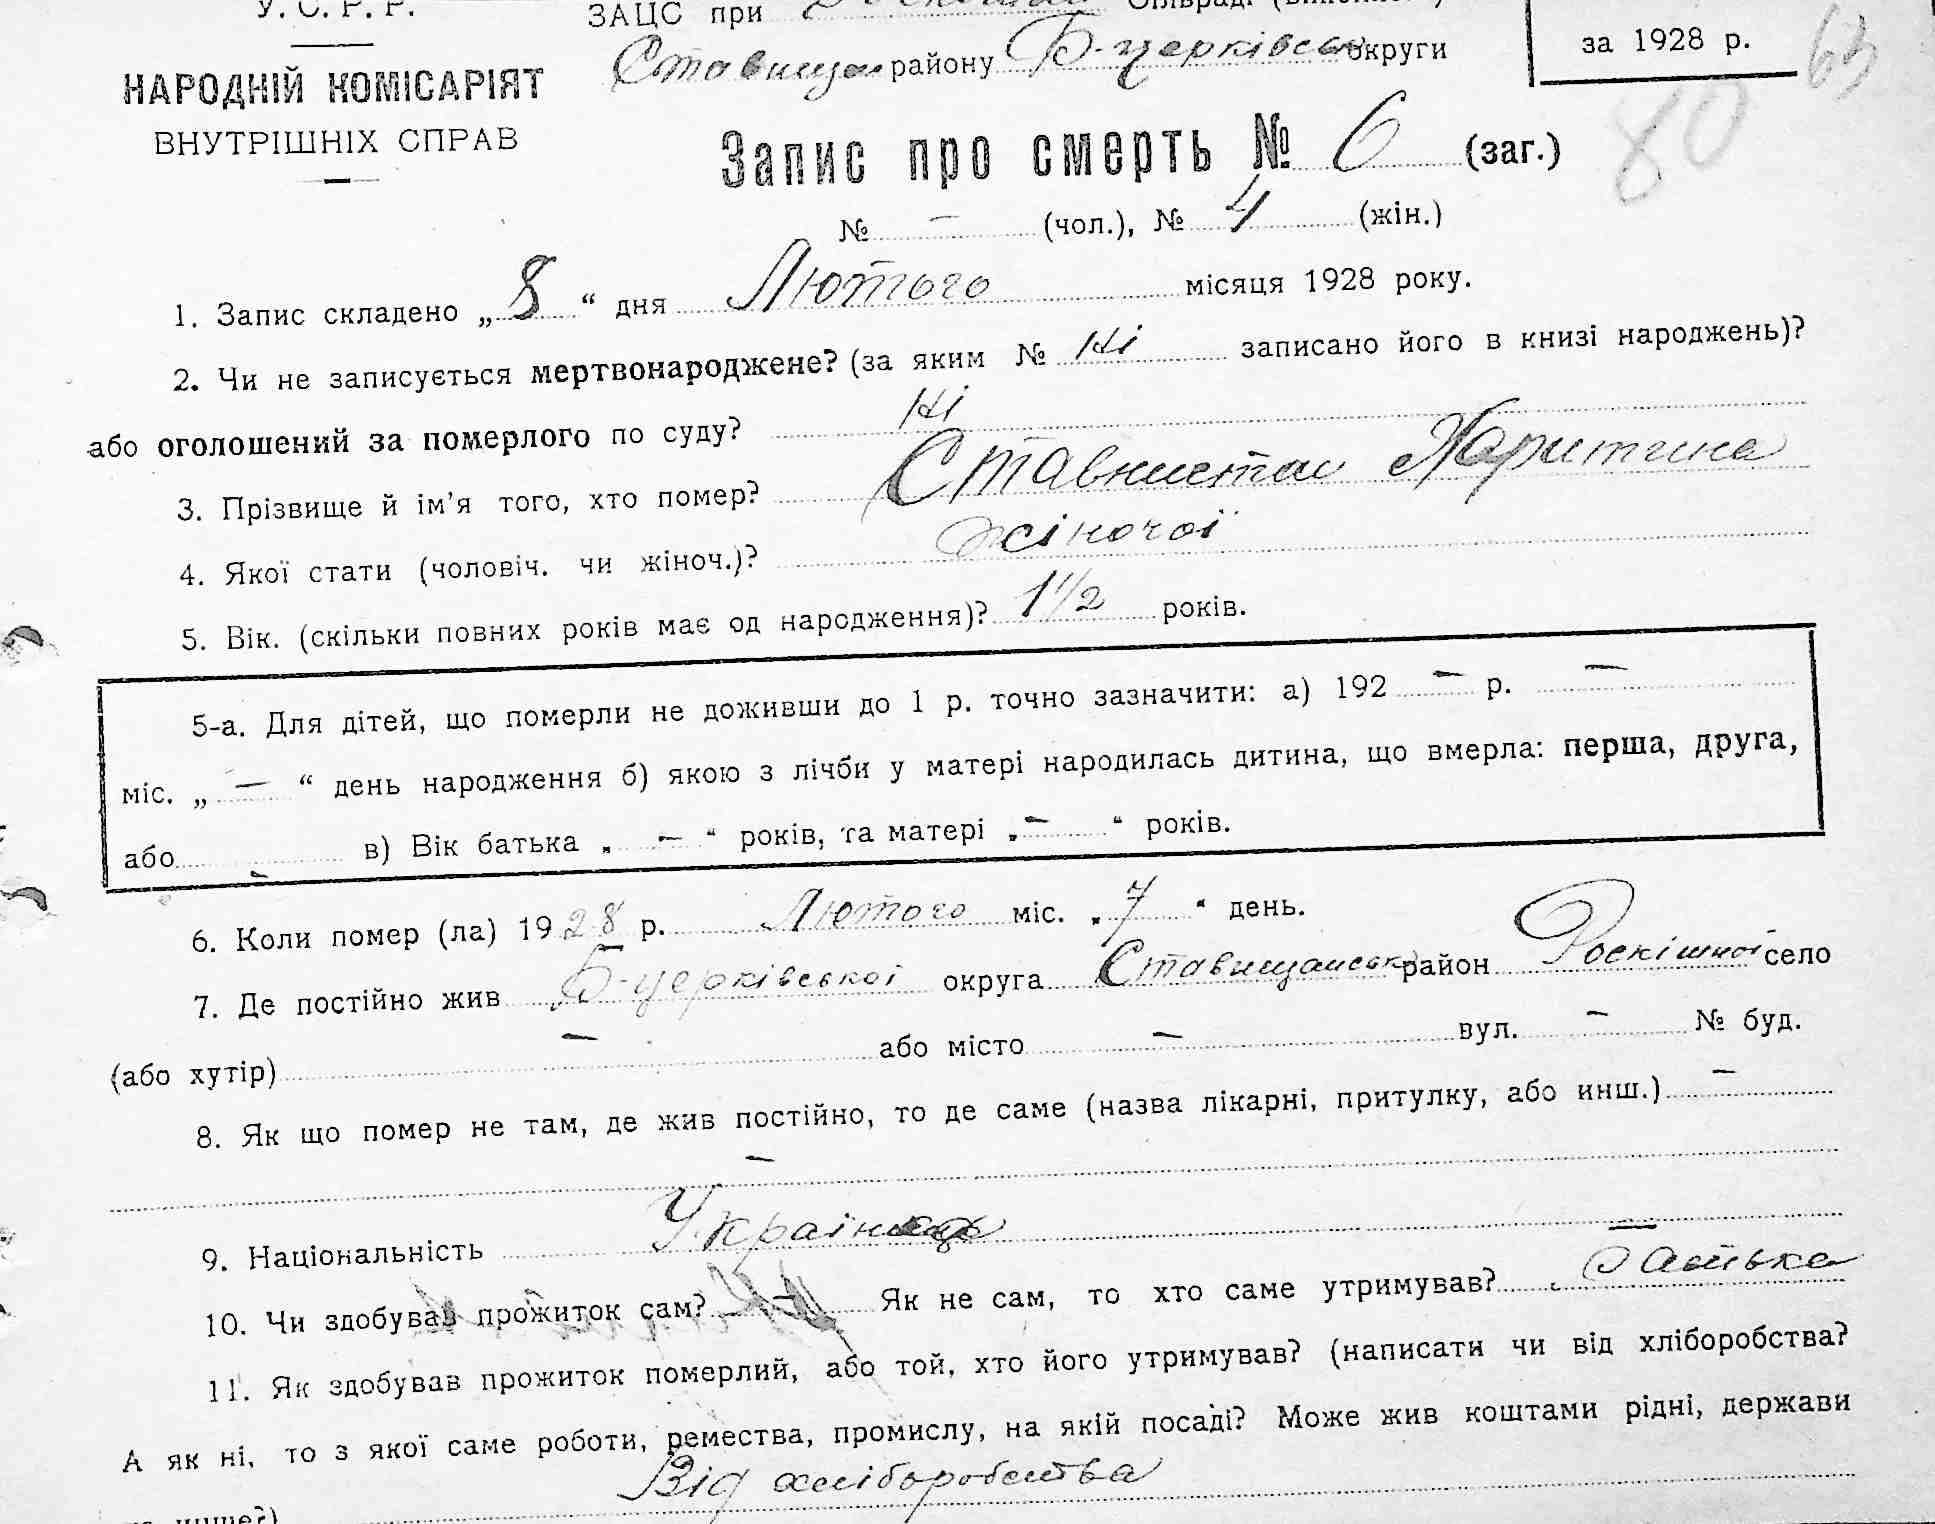 У. С. Р. Р.
ЗАЦС при
Ставищан району Б-церківськ округи
за 1928 р.
63
80
НАРОДНІЙ КОМІСАРІЯТ
ВНУТРІШНІХ СПРАВ
Запис про смерть № 6 (заг.)
№ — (чол.), № 4 (жін.)
1. Запис складено „ 8 “ дня Лютого місяця 1928 року.
2. Чи не записується мертвонароджене? (за яким № Ні записано його в книзі народжень)?
або оголошений за померлого по суду? Ні
3. Прізвище й ім’я того, хто помер? Ставниста Харитина
4. Якої стати (чоловіч. чи жіноч.)? жіночої
5. Вік. (скільки повних років має од народження)? 1 1/2 років.
5-а. Для дітей, що померли не доживши до 1 р. точно зазначити: а) 192 — р. —
міс. „ — “ день народження б) якою з лічби у матері народилась дитина, що вмерла: перша, друга,
або — в) Вік батька „ — “ років, та матері „ — “ років.
6. Коли помер (ла) 1928 р. Лютого міс. „ 7 “ день.
7. Де постійно жив Б-церківської округа Ставищанськ район Роскішної село
(або хутір) — або місто — вул. — № буд.
8. Як що помер не там, де жив постійно, то де саме (назва лікарні, притулку, або инш.) —
—
9. Національність Українець
10. Чи здобував прожиток сам? — Як не сам, то хто саме утримував? Батька
11. Як здобував прожиток померлий, або той, хто його утримував? (написати чи від хліборобства?
А як ні, то з якої саме роботи, ремества, промислу, на якій посаді? Може жив коштами рідні, держави
Від хліборобства